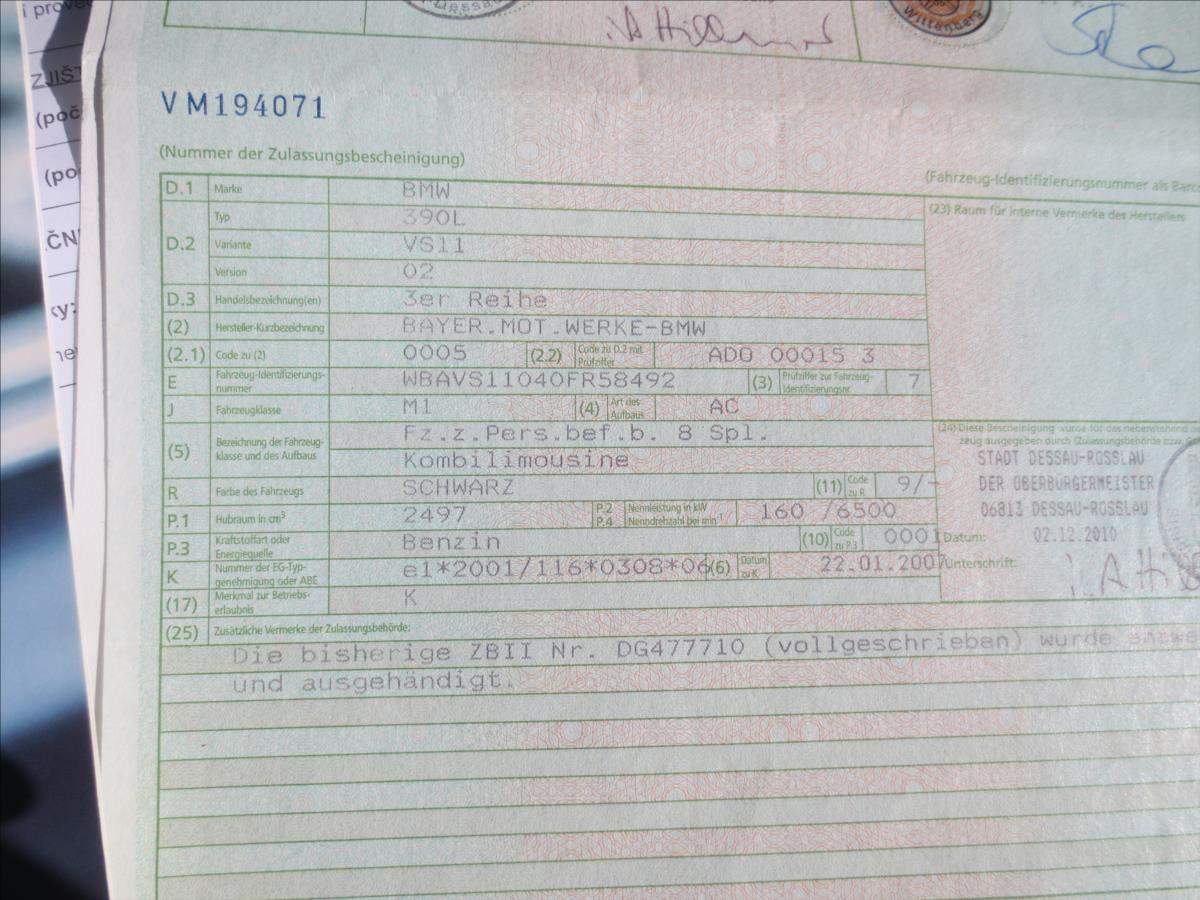 i prove
ZJIŠT
(poč
(po
ČN
ky:
Dessau
Wittenberg
VM194071
(Nummer der Zulassungsbescheinigung)
(Fahrzeug-Identifizierungsnummer als Bar
D.1 Marke BMW
(23) Raum für interne Vermerke des Herstellers
D.2 Typ 390L
Variante VS11
Version 02
D.3 Handelsbezeichnung(en) 3er Reihe
(2) Hersteller-Kurzbezeichnung BAYER.MOT.WERKE-BMW
(2.1) Code zu (2) 0005 (2.2) Code zu D.2 mit Prüfziffer ADO 00015 3
E Fahrzeug-Identifizierungs-nummer WBAVS11040FR58492 (3) Prüfziffer zur Fahrzeug-Identifizierungsnr. 7
J Fahrzeugklasse M1 (4) Art des Aufbaus AC
(5) Bezeichnung der Fahrzeug-klasse und des Aufbaus Fz.z.Pers.bef.b. 8 Spl.
Kombilimousine
(24) Diese Bescheinigung wurde für das nebenstehend
zeug ausgegeben durch (Zulassungsbehörde
STADT DESSAU-ROSSLAU
DER OBERBÜRGERMEISTER
06813 DESSAU-ROSSLAU
R Farbe des Fahrzeugs SCHWARZ (11) Code zu R 9/-
P.1 Hubraum in cm³ 2497 P.2 P.4 Nennleistung in kW Nenndrehzahl bei min⁻¹ 160 /6500
P.3 Kraftstoffart oder Energiequelle Benzin (10) Code zu P.3 0001
Datum: 02.12.2010
K Nummer der EG-Typ-genehmigung oder ABE e1*2001/116*0308*06 (6) Datum zu K 22.01.2007
Unterschrift:
(17) Merkmal zur Betriebs-erlaubnis K
(25) Zusätzliche Vermerke der Zulassungsbehörde:
Die bisherige ZBII Nr. DG477710 (vollgeschrieben) wurde entwe
und ausgehändigt.